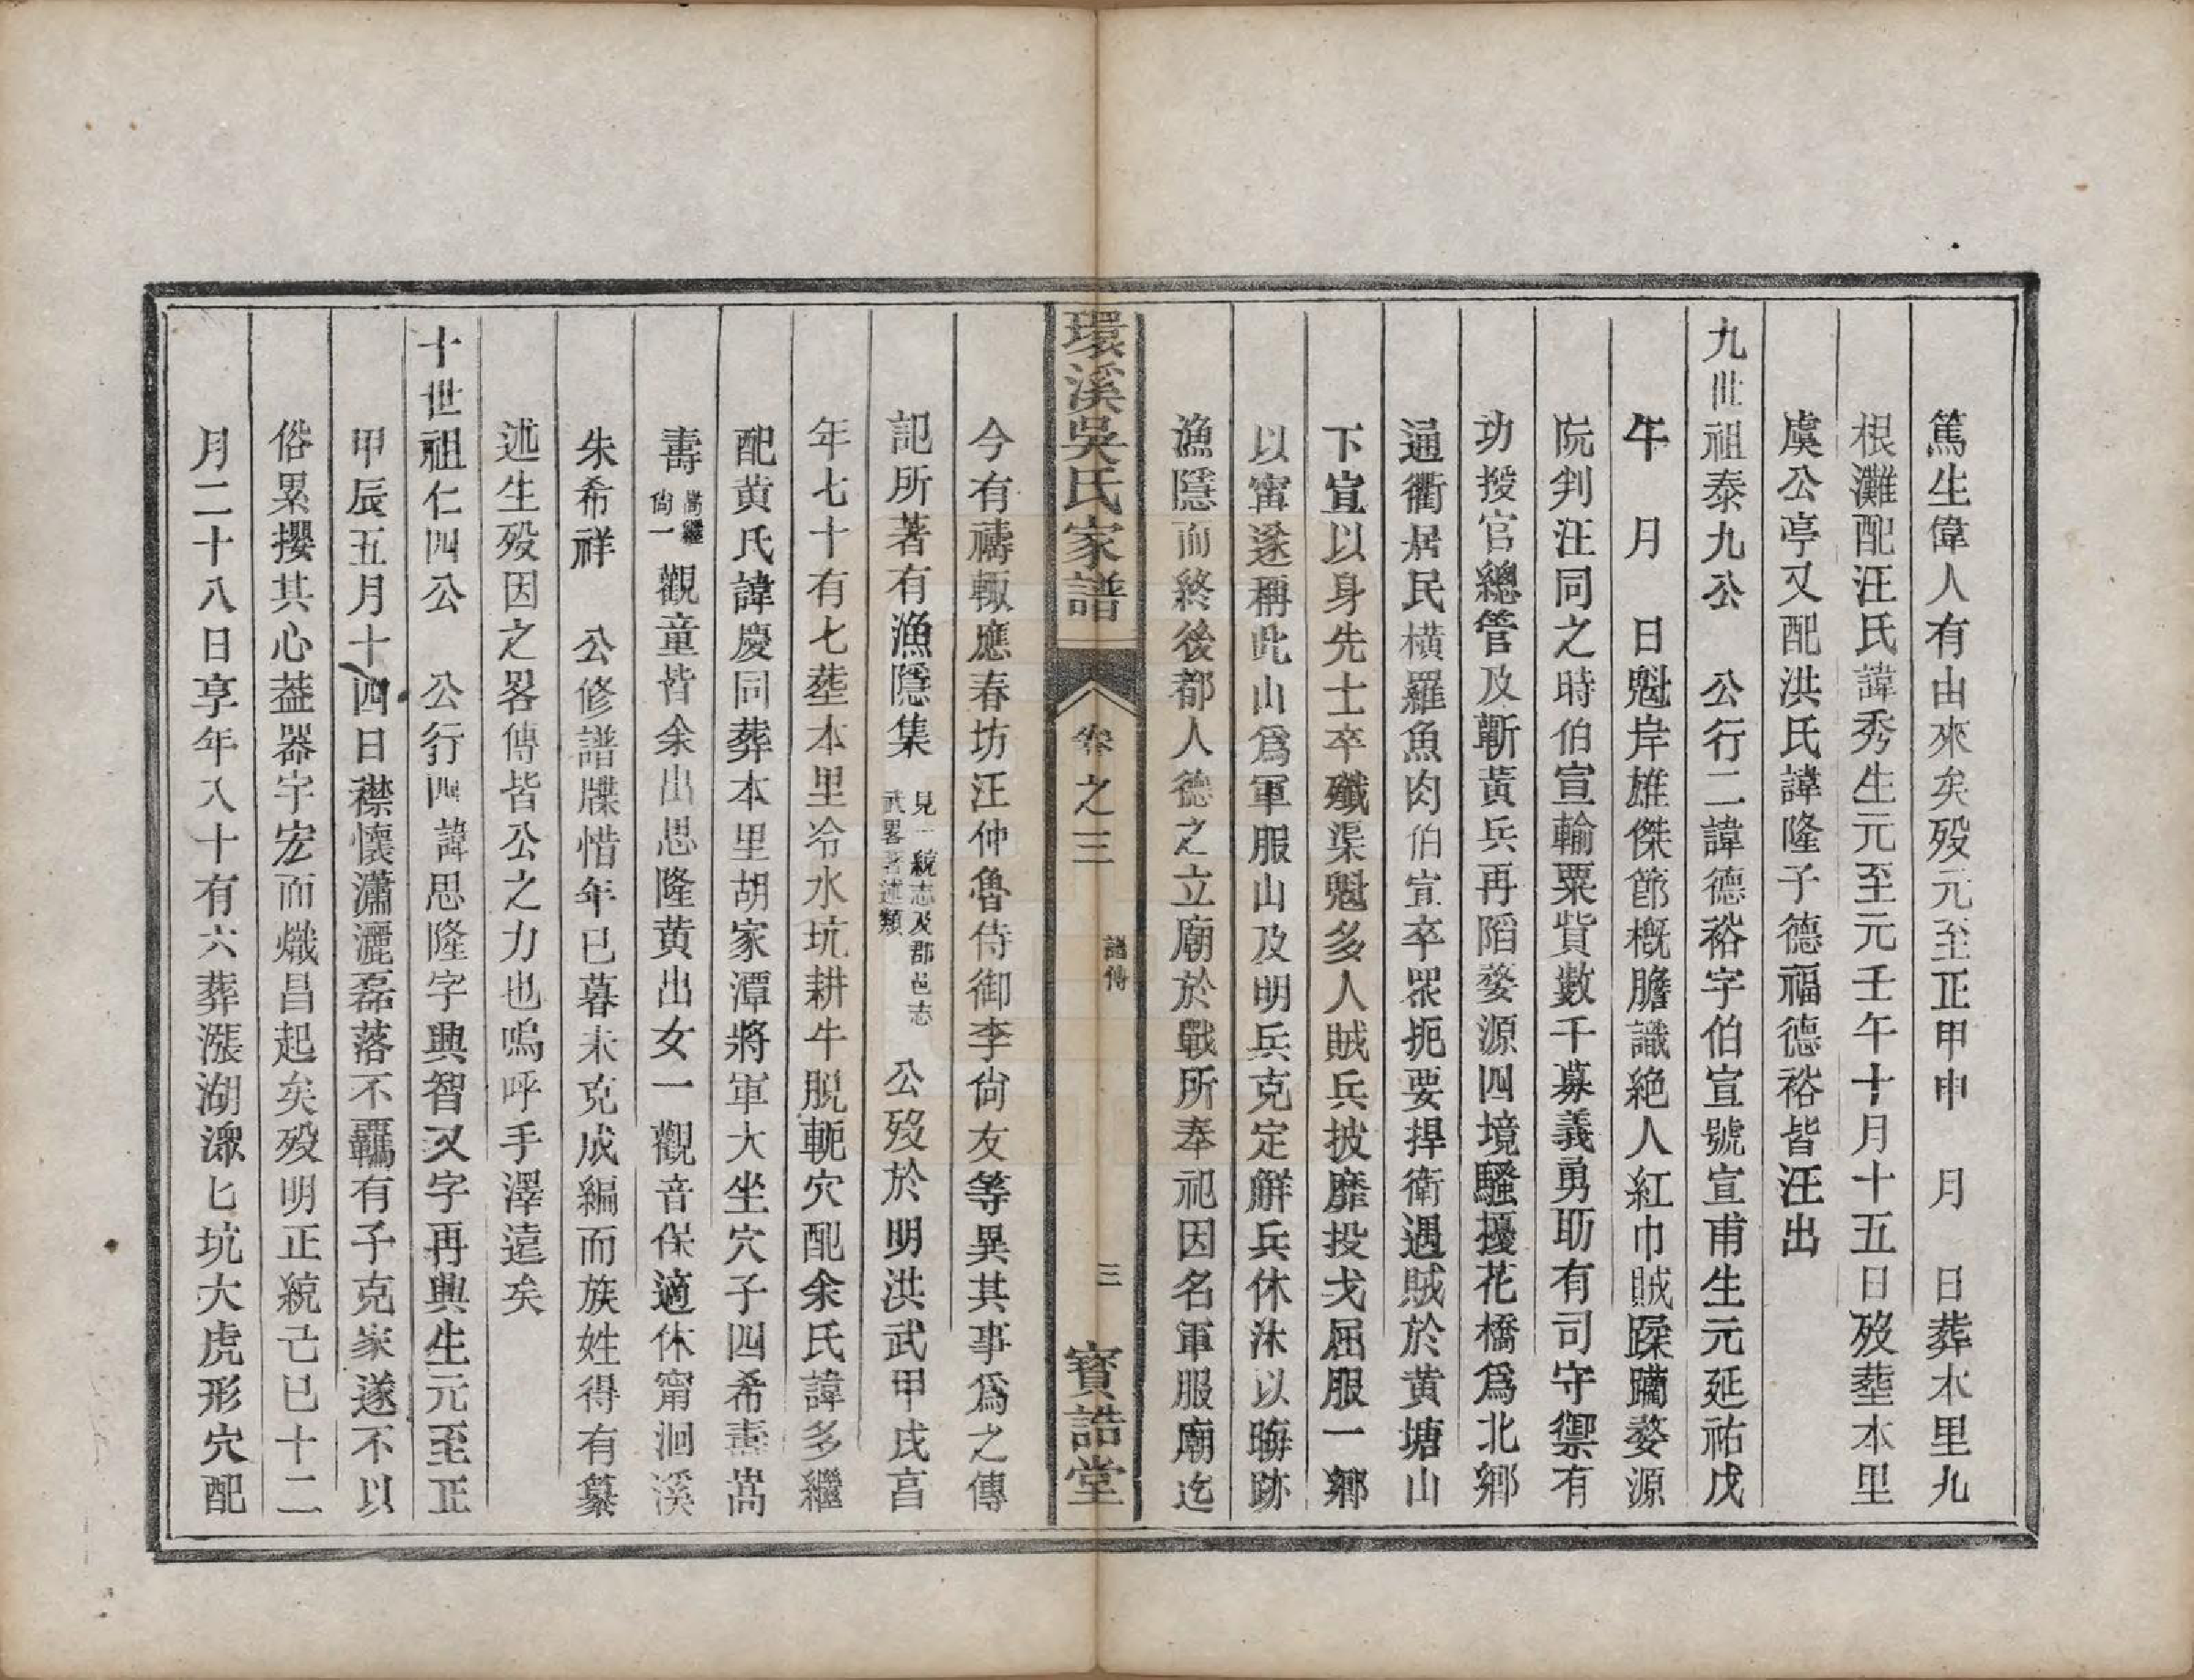 篤生偉人有由來矣殁元至正甲申　月　日葬本里九
根灘配汪氏諱秀生元至元壬午十月十五日殁塟本里
虞公亭又配洪氏諱隆子德福德裕皆汪出
九世祖泰九公　公行二諱德裕字伯宣號宣甫生元延祐戊
午　月　日魁岸雄傑節槪膽識絶人紅巾賊蹂躪婺源
阮判汪同之時伯宣輸粟貲數千募義勇助有司守禦有
功授官總管及蘄黃兵再陷婺源四境騷擾花橋爲北鄉
通衢居民橫羅魚肉伯宣卒眾扼要捍衛遇賊於黃塘山
下宣以身先士卒殲渠魁多人賊兵披靡投戈屈服一鄉
以甯遂稱此山爲軍服山及明兵克定觧兵休沐以晦跡
漁隱而終後都人德之立廟於戰所奉祀因名軍服廟迄
環溪吳氏家譜　卷之三　譜傳　三　寶誥堂
今有禱輙應春坊汪仲魯侍御李尙友等異其事爲之傳
記所著有漁隱集見一統志及郡邑志武畧著述類　公歿於明洪武甲戌亯
年七十有七塟本里冷水坑耕牛脫軛穴配余氏諱多繼
配黄氏諱慶同葬本里胡家潭將軍大坐穴子四希壽嵩
壽嵩繼尙一觀童皆余出思隆黄出女一觀音保適休甯洄溪
朱希祥　公修譜牒惜年已暮未克成編而族姓得有纂
述生殁因之畧傳皆公之力也嗚呼手澤遠矣
十世祖仁四公　公行四諱思隆字興智又字再興生元至正
甲辰五月十四日襟懷瀟灑磊落不羈有子克家遂不以
俗累攖其心葢器宇宏而熾昌起矣殁明正統己巳十二
月二十八日享年八十有六葬漲湖源匕坑大虎形穴配